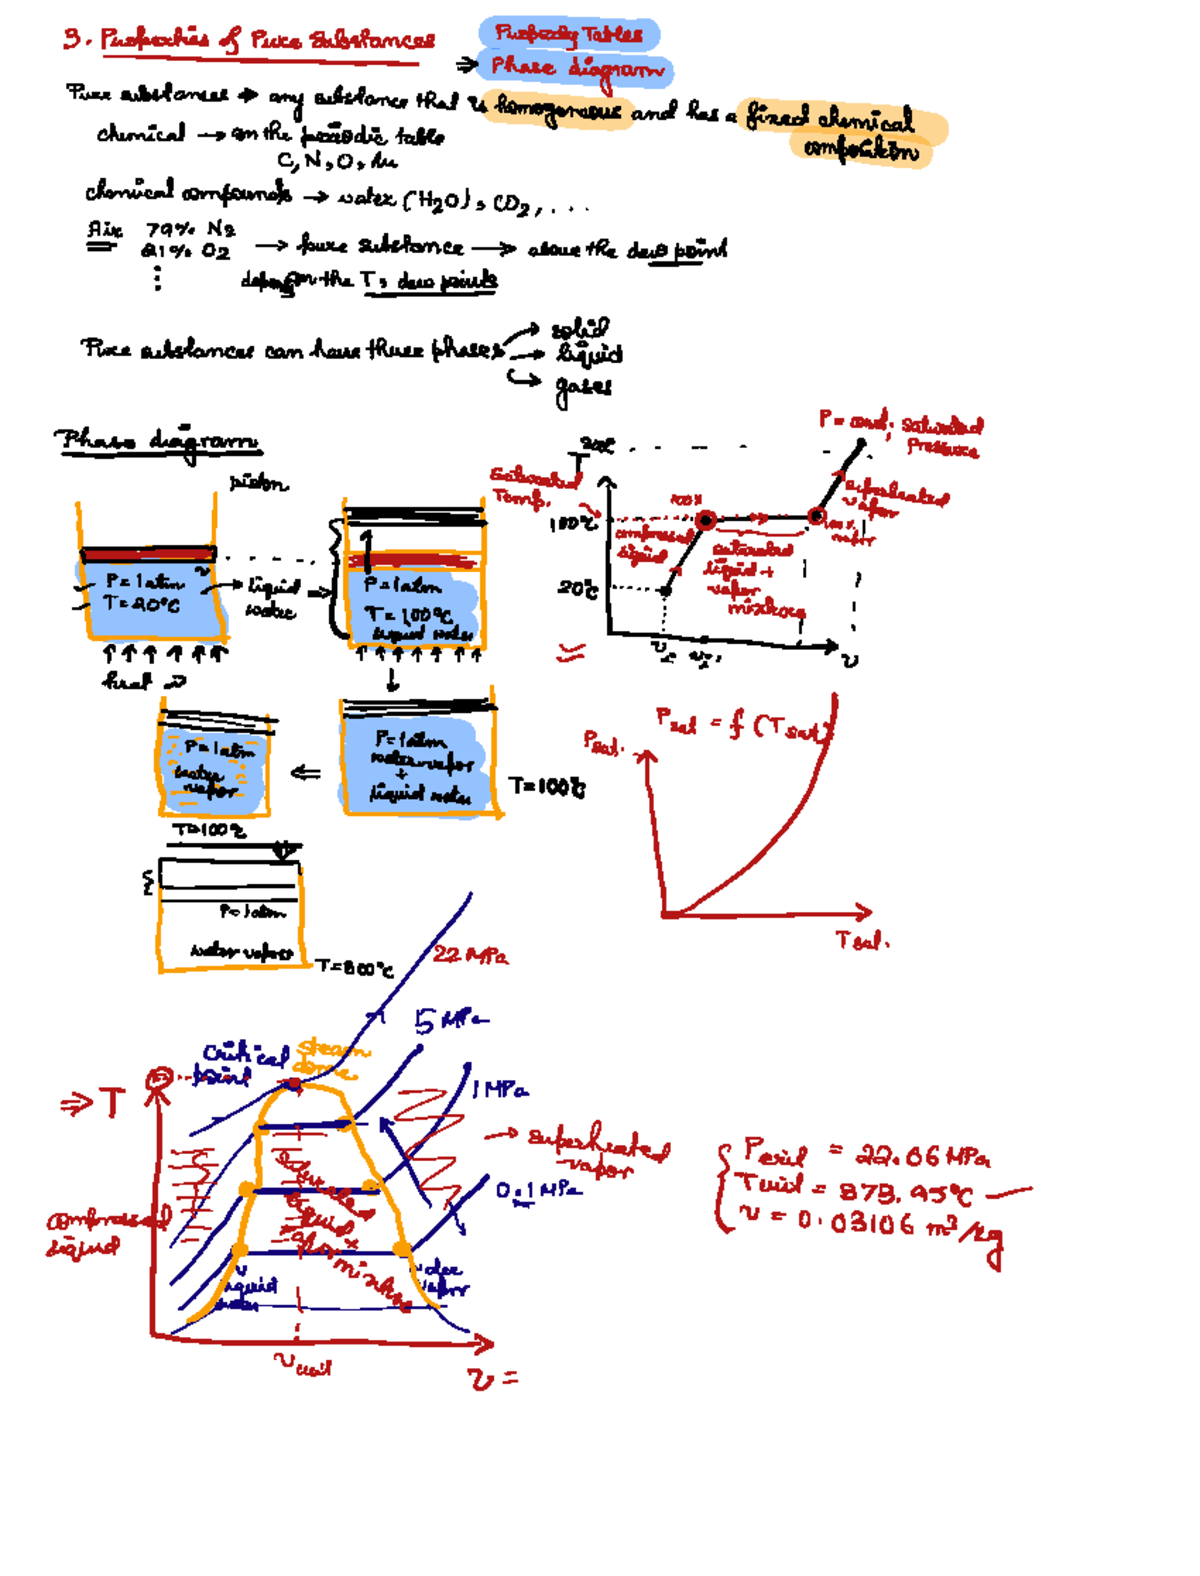 3. Properties of Pure Substances
Property Tables
⇒ Phase diagram
Pure substances → any substance that is homogeneous and has a fixed chemical
composition
chemical → on the periodic table
C, N, O, Au
chemical compounds → water (H2O), CO2, ...
Air 79% N2
21% O2 → pure substance → above the dew point
depends on the T, dew points
Pure substances can have three phases → solid
→ liquid
→ gases
Phase diagram
piston
P = 1 atm
T = 20°C
→ liquid
water
heat
P = 1 atm
T = 100°C
liquid water
P = const, saturated
pressure
T
Saturated
Temp.
100°C
20°C
compressed
liquid
saturated
liquid +
vapor
mixture
superheated
vapor
100%
vapor
v
P = 1 atm
water vapor
+
liquid water
T = 100°C
P = 1 atm
water
vapor
T = 100°C
P = 1 atm
water vapor
T = 300°C
Psat = f (Tsat)
Psat.
Tsat.
22 MPa
5 MPa
1 MPa
0.1 MPa
critical
point
steam
dome
⇒ T
→ superheated
vapor
compressed
liquid
saturated
liquid +
vapor mixture
liquid
water
water
vapor
vcrit
v =
Pcrit = 22.06 MPa
Tcrit = 373.95°C
v = 0.03106 m³/kg